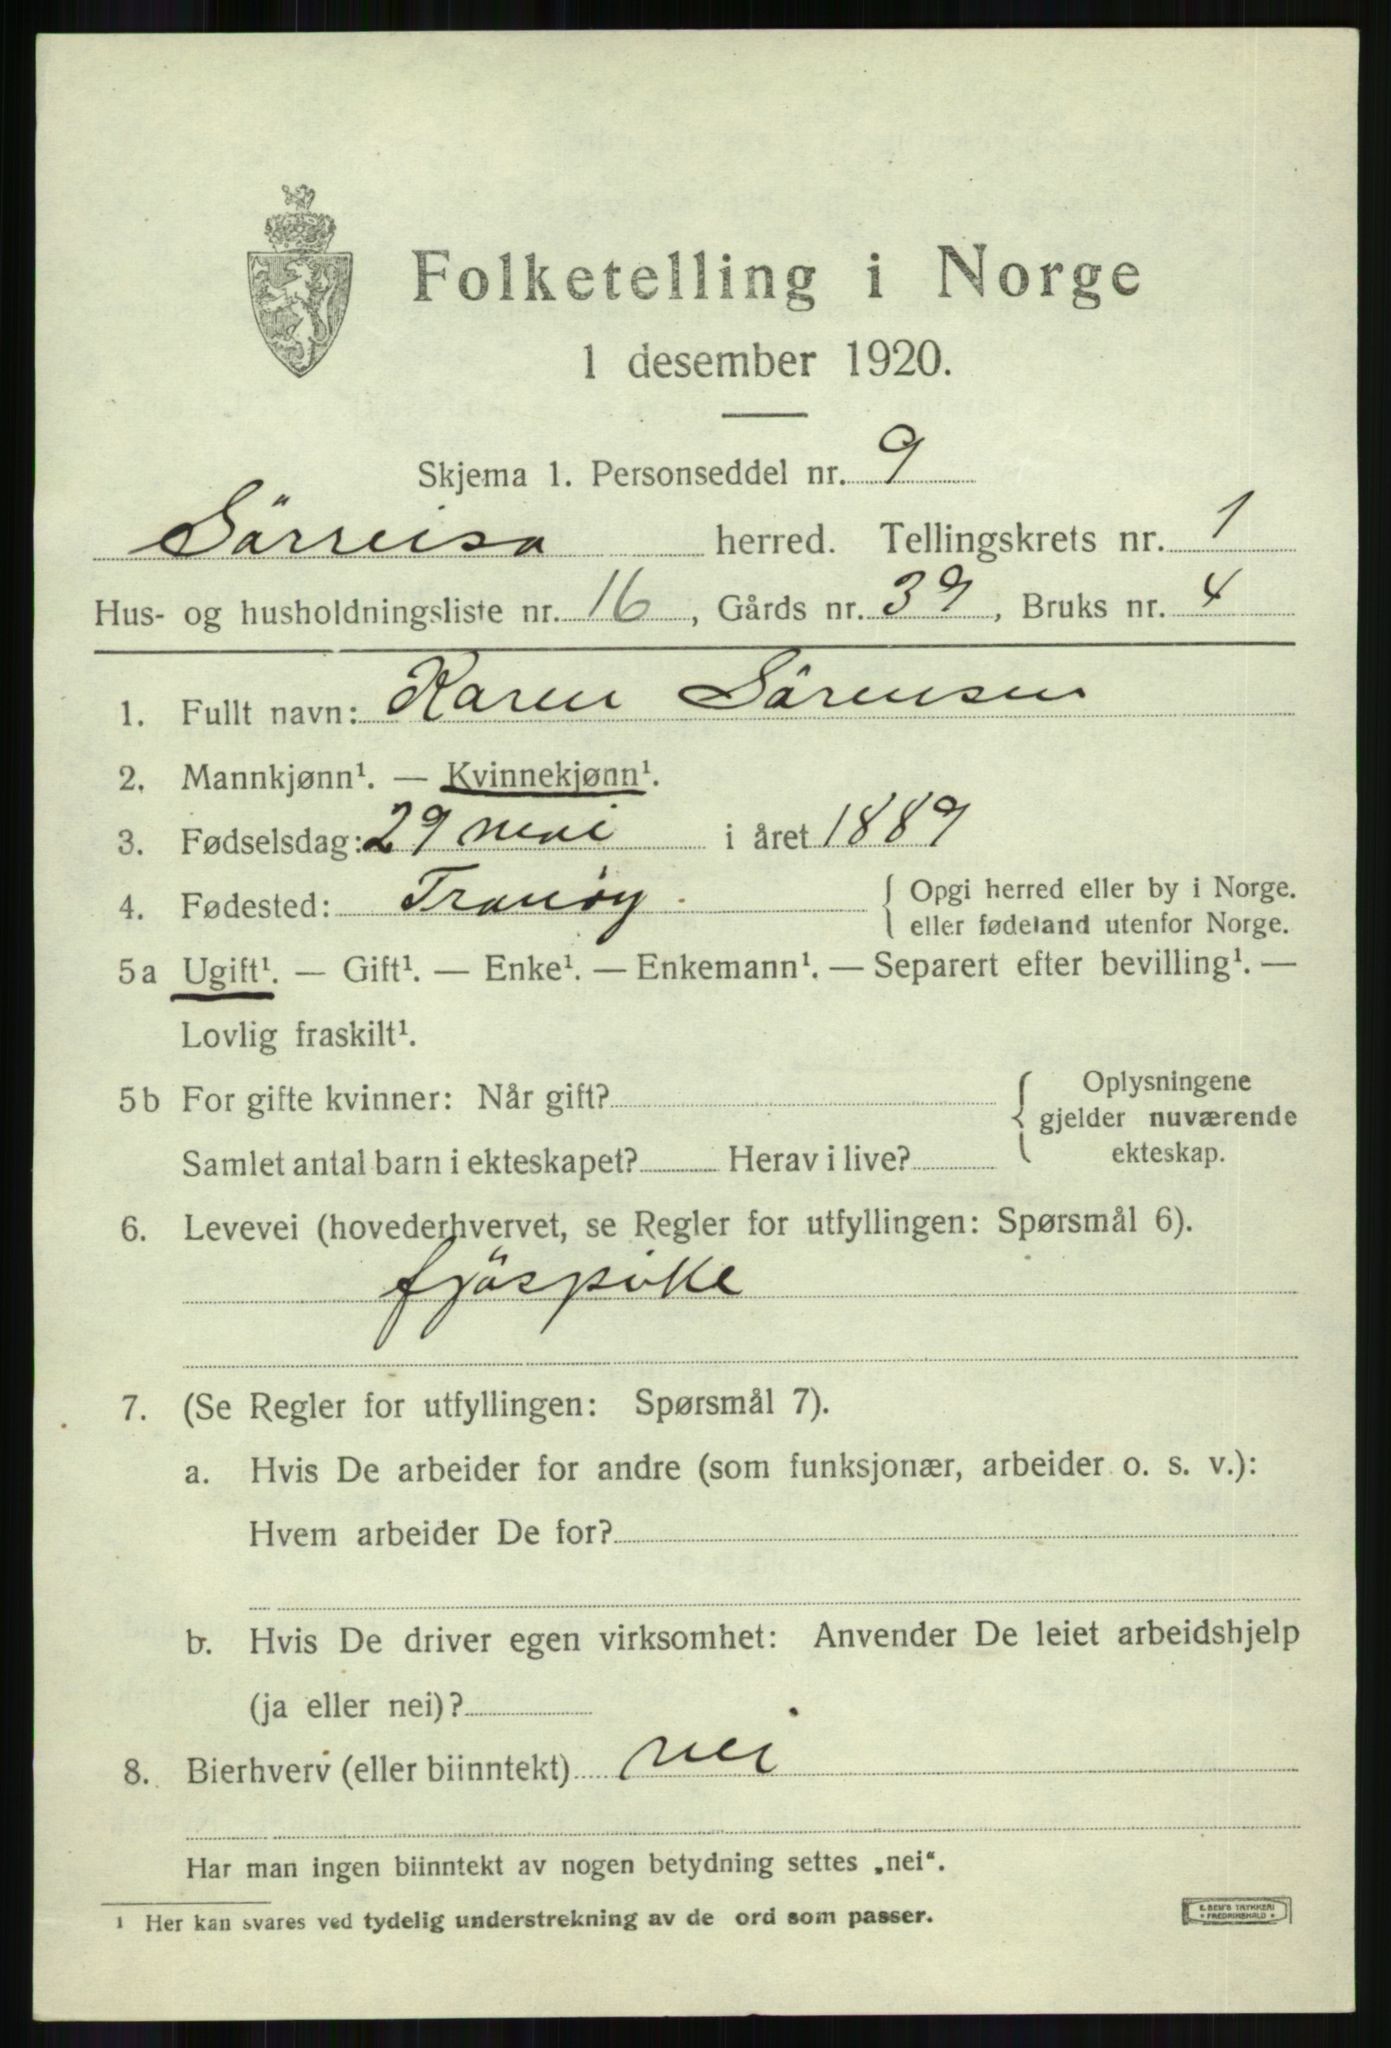 Folketelling i Norge
1 desember 1920.
Skjema 1. Personseddel nr. 9
Sörreisa herred. Tellingskrets nr. 1
Hus- og husholdningsliste nr. 16, Gårds nr. 39, Bruks nr. 4
1. Fullt navn: Karen Sörensen
2. Mannkjønn¹. — Kvinnekjønn¹.
3. Fødselsdag: 29 mai i året 1889
4. Fødested: Tranöy. { Opgi herred eller by i Norge.
eller fødeland utenfor Norge.
5a Ugift¹. — Gift¹. — Enke¹. — Enkemann¹. — Separert efter bevilling¹. —
Lovlig fraskilt¹.
5b For gifte kvinner: Når gift? { Oplysningene
gjelder nuværende
Samlet antal barn i ekteskapet? Herav i live? ekteskap.
6. Levevei (hovederhvervet, se Regler for utfyllingen: Spørsmål 6).
fjöspike
7. (Se Regler for utfyllingen: Spørsmål 7).
a. Hvis De arbeider for andre (som funksjonær, arbeider o. s. v.):
Hvem arbeider De for?
b. Hvis De driver egen virksomhet: Anvender De leiet arbeidshjelp
(ja eller nei)?
8. Bierhverv (eller biinntekt) nei
Har man ingen biinntekt av nogen betydning settes „nei“.
¹ Her kan svares ved tydelig understrekning av de ord som passer.
E. SEM'S TRYKKERI
* FREDRIKSHALD *